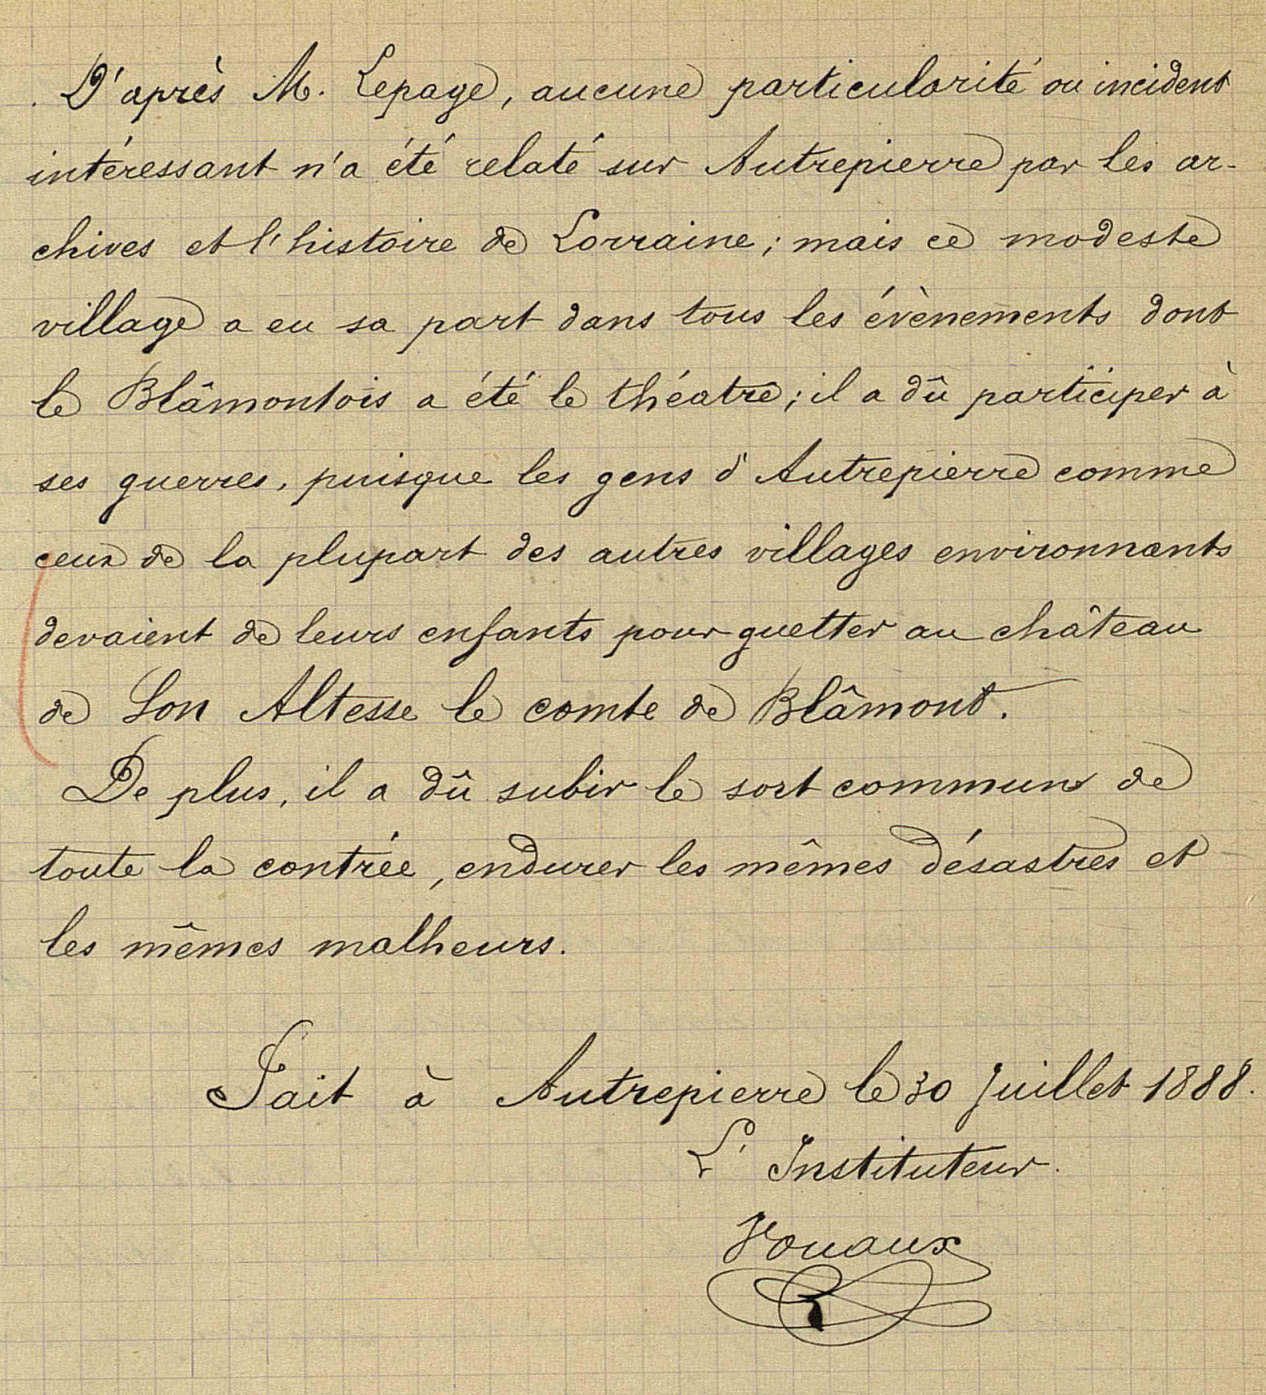 D'après M. Lepage, aucune particularité ou incident
intéressant n'a été relaté sur Autrepierre par les ar-
chives et l'histoire de Lorraine ; mais ce modeste
village a eu sa part dans tous les évènements dont
le Blâmontois a été le théatre ; il a dû participer à
ses guerres, puisque les gens d'Autrepierre comme
ceux de la plupart des autres villages environnants
devaient de leurs enfants pour guetter au château
de Son Altesse le comte de Blâmont.
De plus, il a dû subir le sort commun de
toute la contrée, endurer les mêmes désastres et
les mêmes malheurs.
Fait à Autrepierre le 30 Juillet 1888.
L'Instituteur.
Vouaux